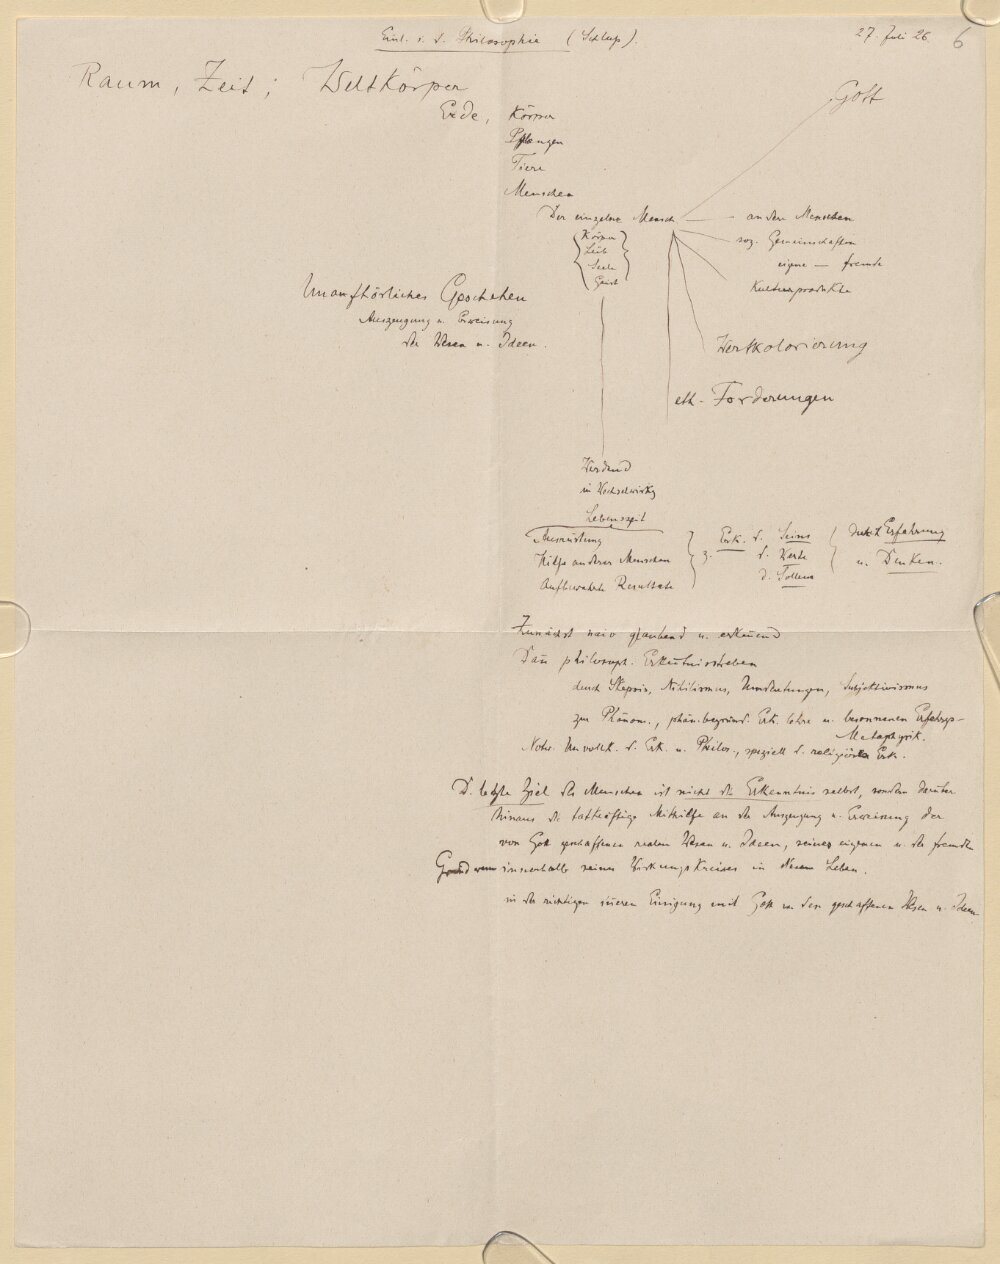 Einl. i. d. Philosophie (Schluß).
27. Juli 26
6
Raum, Zeit; Weltkörper
Erde, Körper
Pflanzen
Tiere
Menschen
Gott
Der einzelne Mensch
Körper
Leib
Seele
Geist
andere Menschen
soz. Gemeinschaften
eigene — fremde
Kulturprodukte
Unaufhörliches Geschehen
Auszeugung u. Erweisung
der Wesen u. Ideen.
Wertkolorierung
eth. Forderungen
Werdend
in Wechselwirkg
Lebenszeit
Ausrüstung
Hilfe anderer Menschen
Aufbewahrte Resultate
z. Erk. d. Seins
d. Werte
d. Sollens
durch Erfahrung
u. Denken.
Zunächst naiv glaubend u. erkennend
Dann philosoph. Erkenntnisstreben
durch Skepsis, Nihilismus, Umdeutungen, Subjektivismus
zur Phänom., phän. begründ. Erk. lehre u. besonnenen Erfahrgs-
Metaphysik.
Notw. Unvollk. d. Erk. u. Philos., speziell d. religiösen Erk.
D. letzte Ziel des Menschen ist nicht die Erkenntnis selbst, sondern darüber
hinaus die tatkräftige Mithilfe an der Auszeugung u. Erweisung der
von Gott geschaffenen realen Wesen u. Ideen, seines eigenen u. der fremden
innerhalb seines Wirkungskreises in diesem Leben.
in der richtigen inneren Einigung mit Gott u. den geschaffenen Wesen u. Ideen